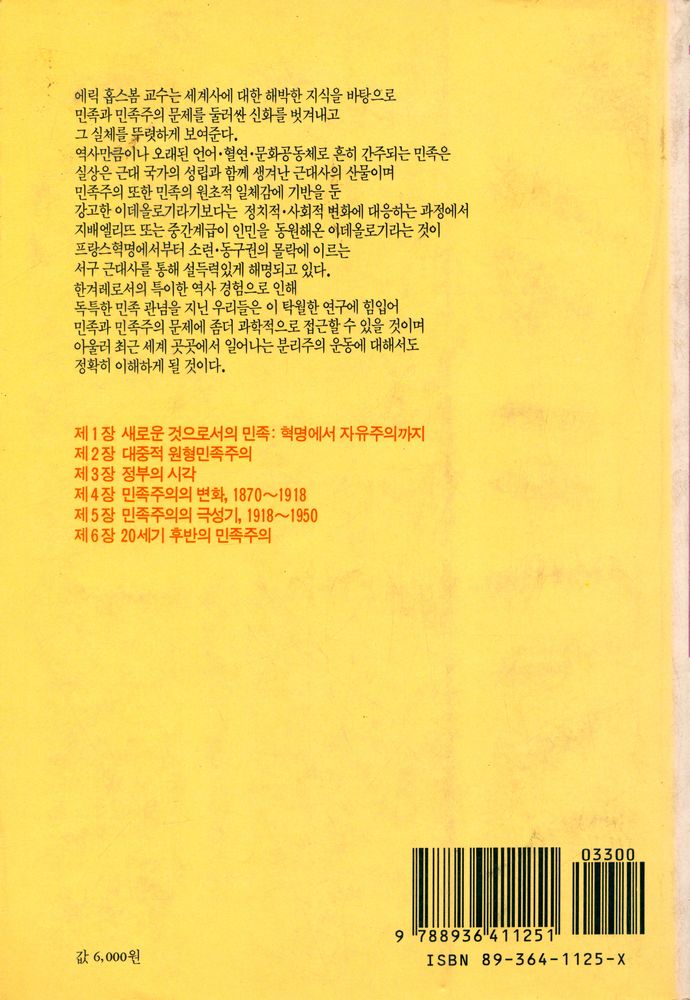 에릭 홉스봄 교수는 세계사에 대한 해박한 지식을 바탕으로
민족과 민족주의 문제를 둘러싼 신화를 벗겨내고
그 실체를 뚜렷하게 보여준다.
역사만큼이나 오래된 언어·혈연·문화공동체로 흔히 간주되는 민족은
실상은 근대 국가의 성립과 함께 생겨난 근대사의 산물이며
민족주의 또한 민족의 원초적 일체감에 기반을 둔
강고한 이데올로기라기보다는 정치적·사회적 변화에 대응하는 과정에서
지배엘리뜨 또는 중간계급이 인민을 동원해온 이데올로기라는 것이
프랑스혁명에서부터 소련·동구권의 몰락에 이르는
서구 근대사를 통해 설득력있게 해명되고 있다.
한겨레로서의 특이한 역사 경험으로 인해
독특한 민족 관념을 지닌 우리들은 이 탁월한 연구에 힘입어
민족과 민족주의 문제에 좀더 과학적으로 접근할 수 있을 것이며
아울러 최근 세계 곳곳에서 일어나는 분리주의 운동에 대해서도
정확히 이해하게 될 것이다.
제1장 새로운 것으로서의 민족: 혁명에서 자유주의까지
제2장 대중적 원형민족주의
제3장 정부의 시각
제4장 민족주의의 변화, 1870~1918
제5장 민족주의의 극성기, 1918~1950
제6장 20세기 후반의 민족주의
03300
9 788936 411251
ISBN 89-364-1125-X
값 6,000원